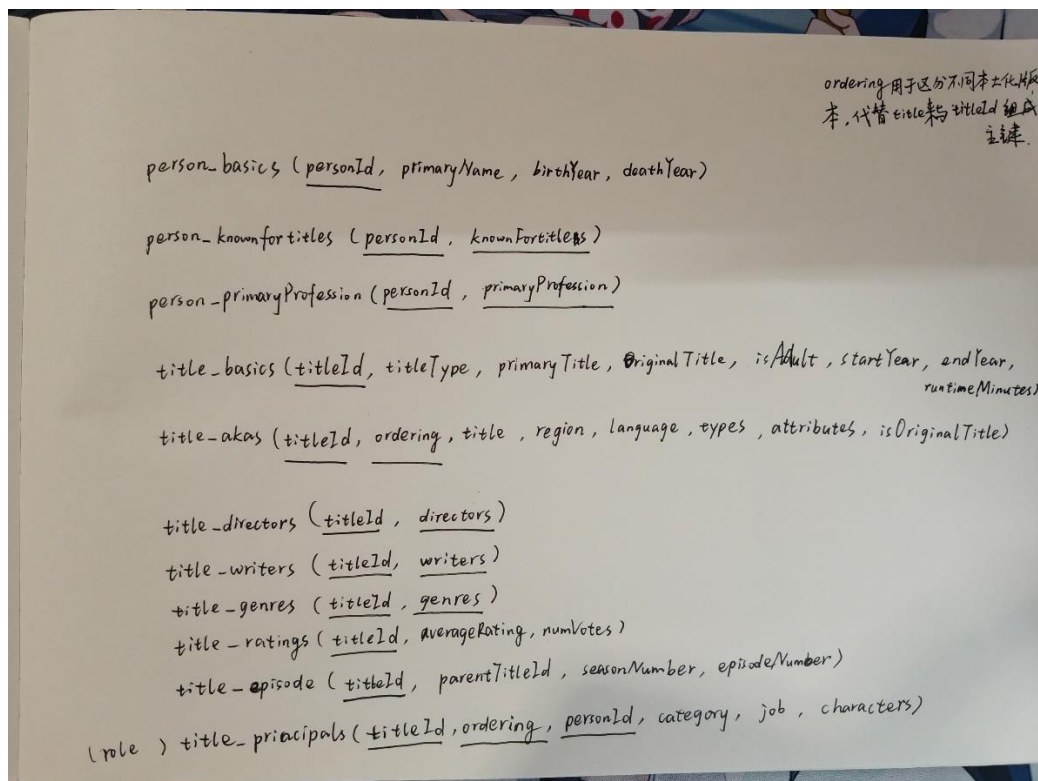 ordering用于区分不同本土化版
本,代替title来与titleId组成
主键.
person_basics (personId, primaryName, birthYear, deathYear)
person_knownfortitles (personId, knownFortitles)
person_primaryProfession (personId, primaryProfession)
title_basics (titleId, titleType, primaryTitle, OriginalTitle, isAdult, startYear, endYear,
runtimeMinutes)
title_akas (titleId, ordering, title, region, language, types, attributes, isOriginalTitle)
title_directors (titleId, directors)
title_writers (titleId, writers)
title_genres (titleId, genres)
title_ratings (titleId, averageRating, numVotes)
title_episode (titleId, parentTitleId, seasonNumber, episodeNumber)
(role ) title_principals (titleId, ordering, personId, category, job, characters)